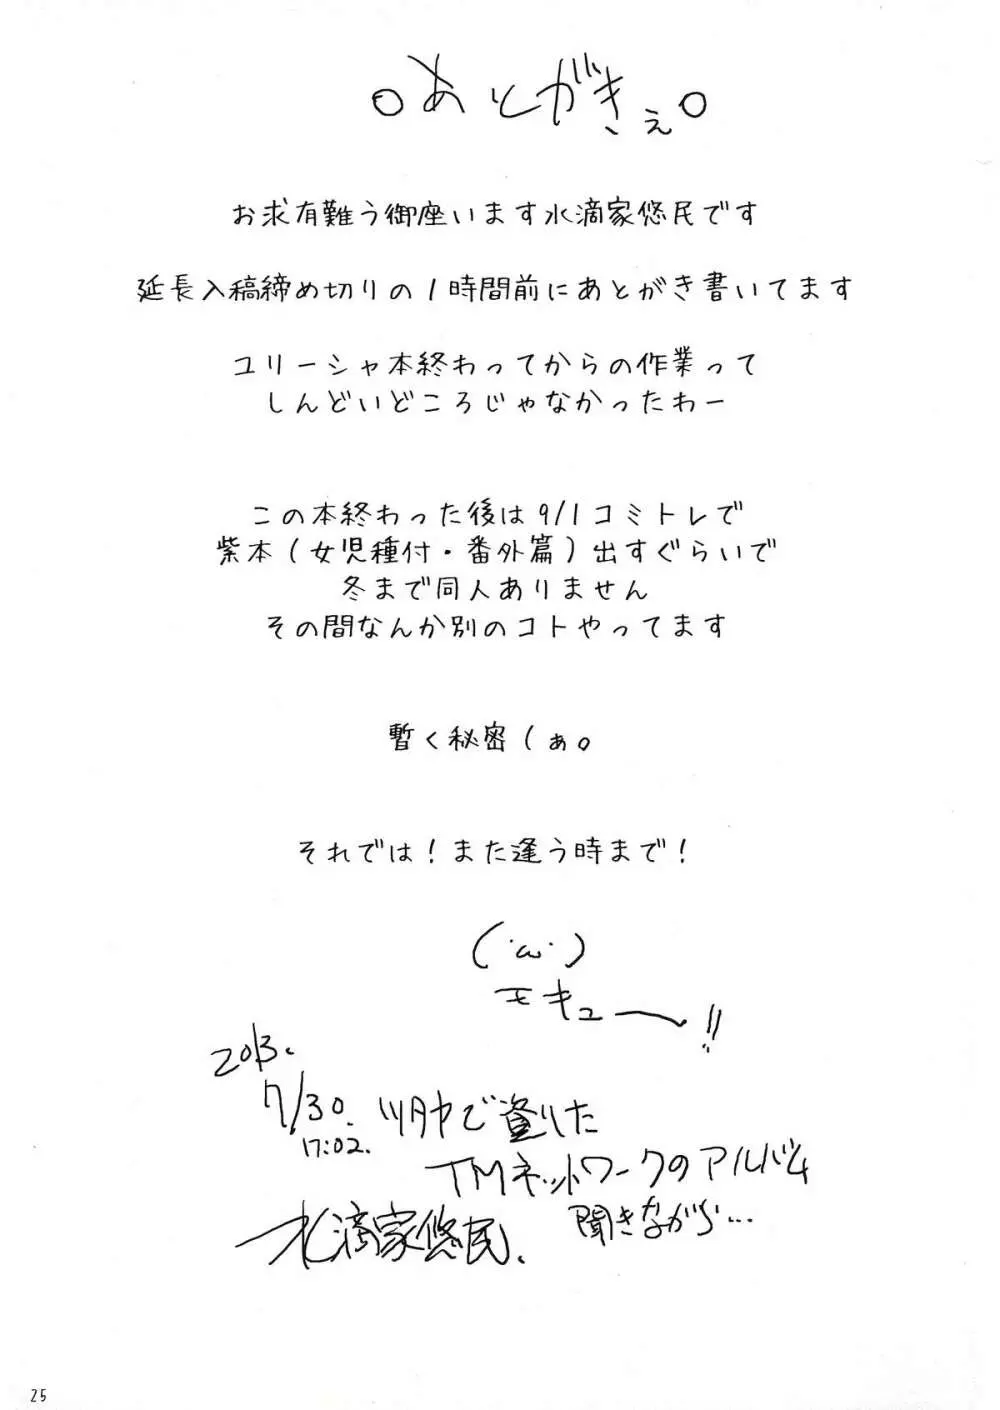 ○あとがきぇ○
お求有難う御座います水滴家悠民です
延長入稿締め切りの1時間前にあとがき書いてます
ユリーシャ本終わってからの作業って
しんどいどころじゃなかったわー
この本終わった後は9/1コミトレで
紫本(女児種付・番外篇)出すぐらいで
冬まで同人ありません
その間なんか別のコトやってます
暫く秘密(ぁ。
それでは!また逢う時まで!
(・ω・)
モキュー!!
2013.
7/30.
17:02.
TMネットワークのアルバム
聞きながら...
水滴家悠民.
25